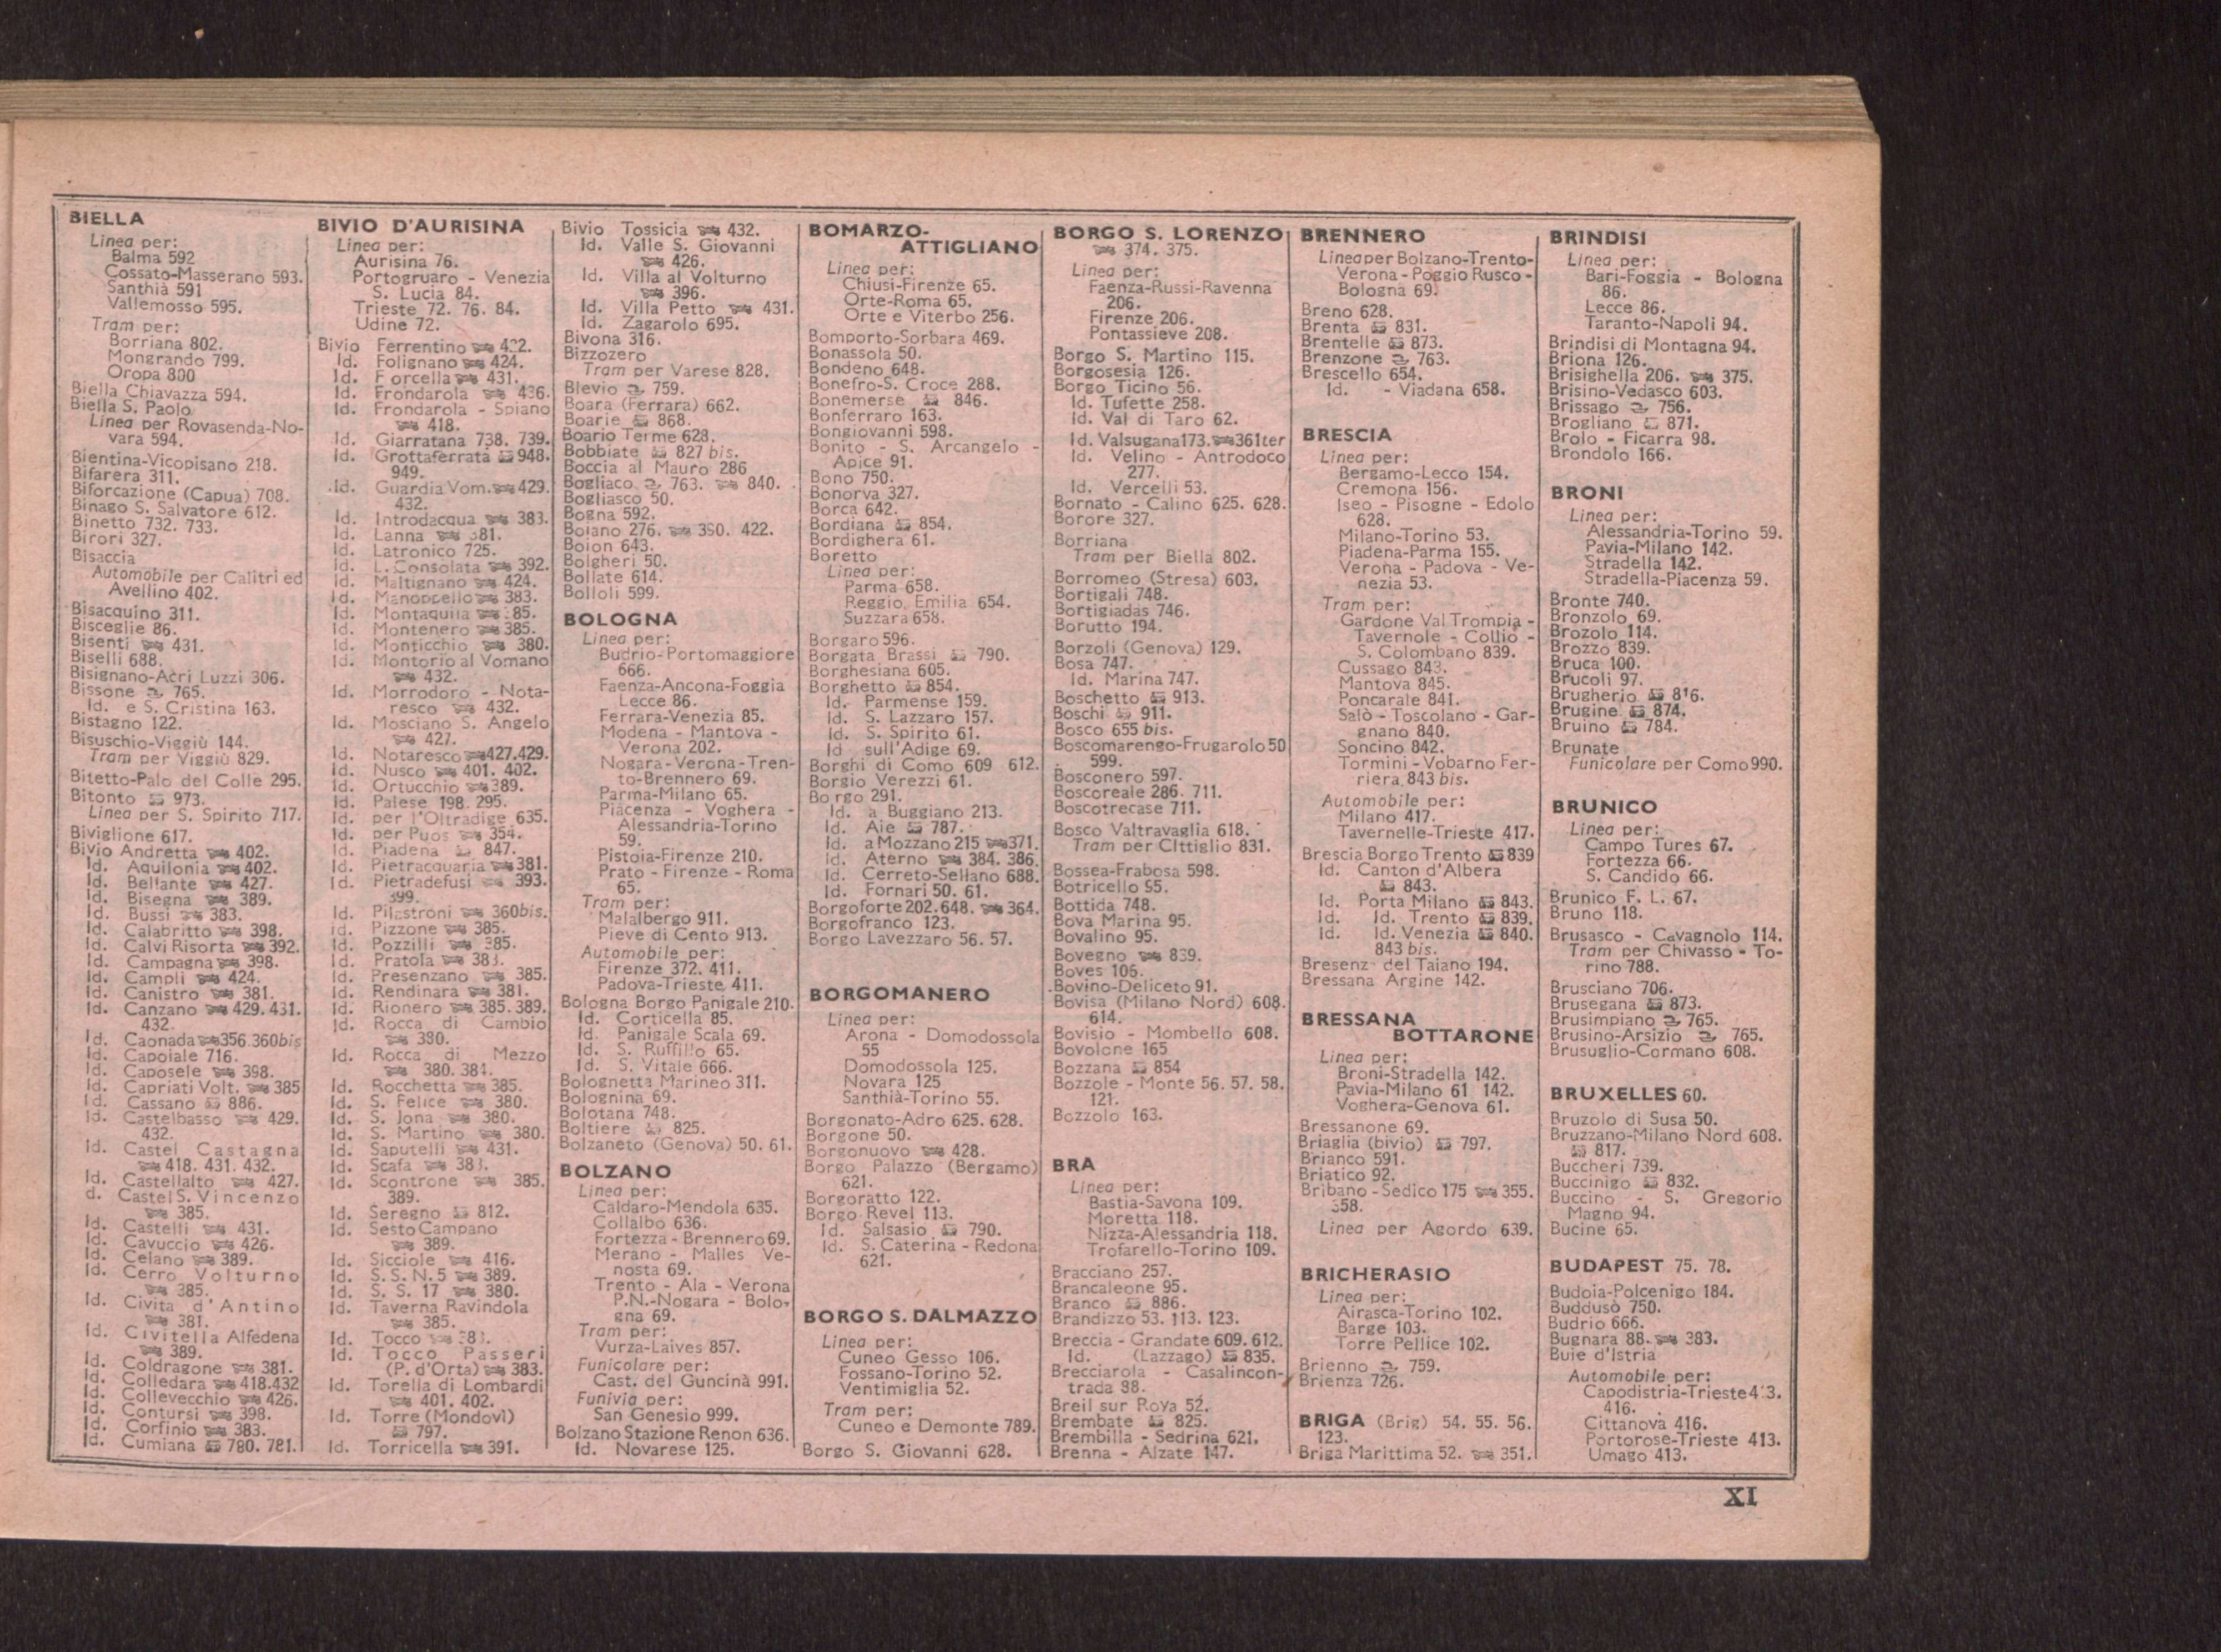 BIELLA
Linea per:
Balma 592
Cossato-Masserano 593.
Santhià 591
Vallemosso 595.
Tram per:
Borriana 802.
Mongrando 799.
Oropa 800
Biella Chiavazza 594.
Biella S. Paolo
Linea per Rovasenda-No-
vara 594.
Bientina-Vicopisano 218.
Bifarera 311.
Biforcazione (Capua) 708.
Binago S. Salvatore 612.
Binetto 732. 733.
Birori 327.
Bisaccia
Automobile per Calitri ed
Avellino 402.
Bisacquino 311.
Bisceglie 86.
Bisenti 431.
Biselli 688.
Bisignano-Acri Luzzi 306.
Bissone 765.
Id. e S. Cristina 163.
Bistagno 122.
Bisuschio-Viggiù 144.
Tram per Viggiù 829.
Bitetto-Palo del Colle 295.
Bitonto 973.
Linea per S. Spirito 717.
Biviglione 617.
Bivio Andretta 402.
Id. Aquilonia 402.
Id. Bellante 427.
Id. Bisegna 389.
Id. Bussi 383.
Id. Calabritto 398.
Id. Calvi Risorta 392.
Id. Campagna 398.
Id. Campli 424.
Id. Canistro 381.
Id. Canzano 429. 431.
432.
Id. Caonada 356. 360bis
Id. Capoiale 716.
Id. Caposele 398.
Id. Capriati Volt. 385
Id. Cassano 886.
Id. Castelbasso 429.
432.
Id. Castel Castagna
418. 431. 432.
Id. Castellalto 427.
d. Castel S. Vincenzo
385.
Id. Castelli 431.
Id. Cavuccio 426.
Id. Celano 389.
Id. Cerro Volturno
385.
Id. Civita d'Antino
381.
Id. Civitella Alfedena
389.
Id. Coldragone 381.
Id. Colledara 418.432
Id. Collevecchio 426.
Id. Contursi 398.
Id. Corfinio 383.
Id. Cumiana 780. 781.
BIVIO D'AURISINA
Linea per:
Aurisina 76.
Portogruaro - Venezia
S. Lucia 84.
Trieste 72. 76. 84.
Udine 72.
Bivio Ferrentino
Id. Folignano 424.
Id. Forcella 431.
Id. Frondarola 436.
Id. Frondarola - Spiano
418.
Id. Giarratana 738. 739.
Id. Grottaferrata 948.
949.
Id. Guardia Vom. 429.
432.
Id. Introdacqua 383.
Id. Lanna 381.
Id. Latronico 725.
Id. L. Consolata 392.
Id. Maltignano 424.
Id. Manoppello 383.
Id. Montaquila 385.
Id. Montenero 385.
Id. Monticchio 380.
Id. Montorio al Vomano
432.
Id. Morrodoro - Nota-
resco 432.
Id. Mosciano S. Angelo
427.
Id. Notaresco 427.429.
Id. Nusco 401. 402.
Id. Ortucchio 389.
Id. Palese 198. 295.
Id. per l'Oltradige 635.
Id. per Puos 354.
Id. Piadena 847.
Id. Pietracquaria 381.
Id. Pietradefusi 393.
399.
Id. Pilastroni 360bis.
Id. Pizzone 385.
Id. Pozzilli 385.
Id. Pratola 383.
Id. Presenzano 385.
Id. Rendinara 381.
Id. Rionero 385. 389.
Id. Rocca di Cambio
380.
Id. Rocca di Mezzo
380. 384.
Id. Rocchetta 385.
Id. S. Felice 380.
Id. S. Jona 380.
Id. S. Martino 380.
Id. Saputelli 431.
Id. Scafa 383.
Id. Scontrone 385.
389.
Id. Seregno 812.
Id. Sesto Campano
389.
Id. Sicciole 416.
Id. S. S. N. 5 389.
Id. S. S. 17 380.
Id. Taverna Ravindola
385.
Id. Tocco 383.
Id. Tocco Passeri
(P. d'Orta) 383.
Id. Torella di Lombardi
401. 402.
Id. Torre (Mondovì)
797.
Id. Torricella 391.
Bivio Tossicia 432.
Id. Valle S. Giovanni
426.
Id. Villa al Volturno
396.
Id. Villa Petto 431.
Id. Zagarolo 695.
Bivona 316.
Bizzozero
Tram per Varese 828.
Blevio 759.
Boara (Ferrara) 662.
Boarie 868.
Boario Terme 628.
Bobbiate 827 bis.
Boccia al Mauro 286
Bogliaco 763. 840.
Bogliasco 50.
Bogna 592.
Boiano 276. 390. 422.
Boion 643.
Bolgheri 50.
Bollate 614.
Bolloli 599.
BOLOGNA
Linea per:
Budrio-Portomaggiore
666.
Faenza-Ancona-Foggia
Lecce 86.
Ferrara-Venezia 85.
Modena - Mantova -
Verona 202.
Nogara-Verona-Tren-
to-Brennero 69.
Parma-Milano 65.
Piacenza - Voghera -
Alessandria-Torino
59.
Pistoia-Firenze 210.
Prato - Firenze - Roma
65.
Tram per:
Malalbergo 911.
Pieve di Cento 913.
Automobile per:
Firenze 372. 411.
Padova-Trieste 411.
Bologna Borgo Panigale 210.
Id. Corticella 85.
Id. Panigale Scala 69.
Id. S. Ruffillo 65.
Id. S. Vitale 666.
Bolognetta Marineo 311.
Bolognina 69.
Bolotana 748.
Boltiere 825.
Bolzaneto (Genova) 50. 61.
BOLZANO
Linea per:
Caldaro-Mendola 635.
Collalbo 636.
Fortezza - Brennero 69.
Merano - Malles Ve-
nosta 69.
Trento - Ala - Verona
P.N.-Nogara - Bolo-
gna 69.
Tram per:
Vurza-Laives 857.
Funicolare per:
Cast. del Guncinà 991.
Funivia per:
San Genesio 999.
Bolzano Stazione Renon 636.
Id. Novarese 125.
BOMARZO-
ATTIGLIANO
Linea per:
Chiusi-Firenze 65.
Orte-Roma 65.
Orte e Viterbo 256.
Bomporto-Sorbara 469.
Bonassola 50.
Bondeno 648.
Bonefro-S. Croce 288.
Bonemerse 846.
Bonferraro 163.
Bongiovanni 598.
Bonito - S. Arcangelo -
Apice 91.
Bono 750.
Bonorva 327.
Borca 642.
Bordiana 854.
Bordighera 61.
Boretto
Linea per:
Parma 658.
Reggio Emilia 654.
Suzzara 658.
Borgaro 596.
Borgata Brassi 790.
Borghesiana 605.
Borghetto 854.
Id. Parmense 159.
Id. S. Lazzaro 157.
Id. S. Spirito 61.
Id sull'Adige 69.
Borghi di Como 609 612.
Borgio Verezzi 61.
Borgo 291.
Id. a Buggiano 213.
Id. Aie 787.
Id. a Mozzano 215 371.
Id. Aterno 384. 386.
Id. Cerreto-Sellano 688.
Id. Fornari 50. 61.
Borgoforte 202. 648. 364.
Borgofranco 123.
Borgo Lavezzaro 56. 57.
BORGOMANERO
Linea per:
Arona - Domodossola
55
Domodossola 125.
Novara 125
Santhià-Torino 55.
Borgonato-Adro 625. 628.
Borgone 50.
Borgonuovo 428.
Borgo Palazzo (Bergamo)
621.
Borgoratto 122.
Borgo Revel 113.
Id. Salsasio 790.
Id. S. Caterina - Redona
621.
BORGO S. DALMAZZO
Linea per:
Cuneo Gesso 106.
Fossano-Torino 52.
Ventimiglia 52.
Tram per:
Cuneo e Demonte 789.
Borgo S. Giovanni 628.
BORGO S. LORENZO
374. 375.
Linea per:
Faenza-Russi-Ravenna
206.
Firenze 206.
Pontassieve 208.
Borgo S. Martino 115.
Borgosesia 126.
Borgo Ticino 56.
Id. Tufette 258.
Id. Val di Taro 62.
Id. Valsugana 173. 361ter
Id. Velino - Antrodoco
277.
Id. Vercelli 53.
Bornato - Calino 625. 628.
Borore 327.
Borriana
Tram per Biella 802.
Borromeo (Stresa) 603.
Bortigali 748.
Bortigiadas 746.
Borutto 194.
Borzoli (Genova) 129.
Bosa 747.
Id. Marina 747.
Boschetto 913.
Boschi 911.
Bosco 655 bis.
Boscomarengo-Frugarolo 50
599.
Bosconero 597.
Boscoreale 286. 711.
Boscotrecase 711.
Bosco Valtravaglia 618.
Tram per CIttiglio 831.
Bossea-Frabosa 598.
Botricello 95.
Bottida 748.
Bova Marina 95.
Bovalino 95.
Bovegno 839.
Boves 106.
Bovino-Deliceto 91.
Bovisa (Milano Nord) 608.
614.
Bovisio - Mombello 608.
Bovolone 165
Bozzana 854
Bozzole - Monte 56. 57. 58.
121.
Bozzolo 163.
BRA
Linea per:
Bastia-Savona 109.
Moretta 118.
Nizza-Alessandria 118.
Trofarello-Torino 109.
Bracciano 257.
Brancaleone 95.
Branco 886.
Brandizzo 53. 113. 123.
Breccia - Grandate 609. 612.
Id. (Lazzago) 835.
Brecciarola - Casalincon-
trada 98.
Breil sur Roya 52.
Brembate 825.
Brembilla - Sedrina 621.
Brenna - Alzate 147.
BRENNERO
Linea per Bolzano-Trento-
Verona - Poggio Rusco -
Bologna 69.
Breno 628.
Brenta 831.
Brentelle 873.
Brenzone 763.
Brescello 654.
Id. - Viadana 658.
BRESCIA
Linea per:
Bergamo-Lecco 154.
Cremona 156.
Iseo - Pisogne - Edolo
628.
Milano-Torino 53.
Piadena-Parma 155.
Verona - Padova - Ve-
nezia 53.
Tram per:
Gardone Val Trompia -
Tavernole - Collio -
S. Colombano 839.
Cussago 843.
Mantova 845.
Poncarale 841.
Salò - Toscolano - Gar-
gnano 840.
Soncino 842.
Tormini - Vobarno Fer-
riera 843 bis.
Automobile per:
Milano 417.
Tavernelle-Trieste 417.
Brescia Borgo Trento 839
Id. Canton d'Albera
843.
Id. Porta Milano 843.
Id. Id. Trento 839.
Id. Id. Venezia 840.
843 bis.
Bresenz del Taiano 194.
Bressana Argine 142.
BRESSANA
BOTTARONE
Linea per:
Broni-Stradella 142.
Pavia-Milano 61 142.
Voghera-Genova 61.
Bressanone 69.
Briaglia (bivio) 797.
Brianco 591.
Briatico 92.
Bribano - Sedico 175 355.
358.
Linea per Agordo 639.
BRICHERASIO
Linea per:
Airasca-Torino 102.
Barge 103.
Torre Pellice 102.
Brienno 759.
Brienza 726.
BRIGA (Brig) 54. 55. 56.
123.
Briga Marittima 52. 351.
BRINDISI
Linea per:
Bari-Foggia - Bologna
86.
Lecce 86.
Taranto-Napoli 94.
Brindisi di Montagna 94.
Briona 126.
Brisighella 206. 375.
Brisino-Vedasco 603.
Brissago 756.
Brogliano 871.
Brolo - Ficarra 98.
Brondolo 166.
BRONI
Linea per:
Alessandria-Torino 59.
Pavia-Milano 142.
Stradella 142.
Stradella-Piacenza 59.
Bronte 740.
Bronzolo 69.
Brozolo 114.
Brozzo 839.
Bruca 100.
Brucoli 97.
Brugherio 816.
Brugine 874.
Bruino 784.
Brunate
Funicolare per Como 990.
BRUNICO
Linea per:
Campo Tures 67.
Fortezza 66.
S. Candido 66.
Brunico F. L. 67.
Bruno 118.
Brusasco - Cavagnolo 114.
Tram per Chivasso - To-
rino 788.
Brusciano 706.
Brusegana 873.
Brusimpiano 765.
Brusino-Arsizio 765.
Brusuglio-Cormano 608.
BRUXELLES 60.
Bruzolo di Susa 50.
Bruzzano-Milano Nord 608.
817.
Buccheri 739.
Buccinigo 832.
Buccino - S. Gregorio
Magno 94.
Bucine 65.
BUDAPEST 75. 78.
Budoia-Polcenigo 184.
Buddusò 750.
Budrio 666.
Bugnara 88. 383.
Buie d'Istria
Automobile per:
Capodistria-Trieste
416.
Cittanova 416.
Portorose-Trieste 413.
Umago 413.
XI